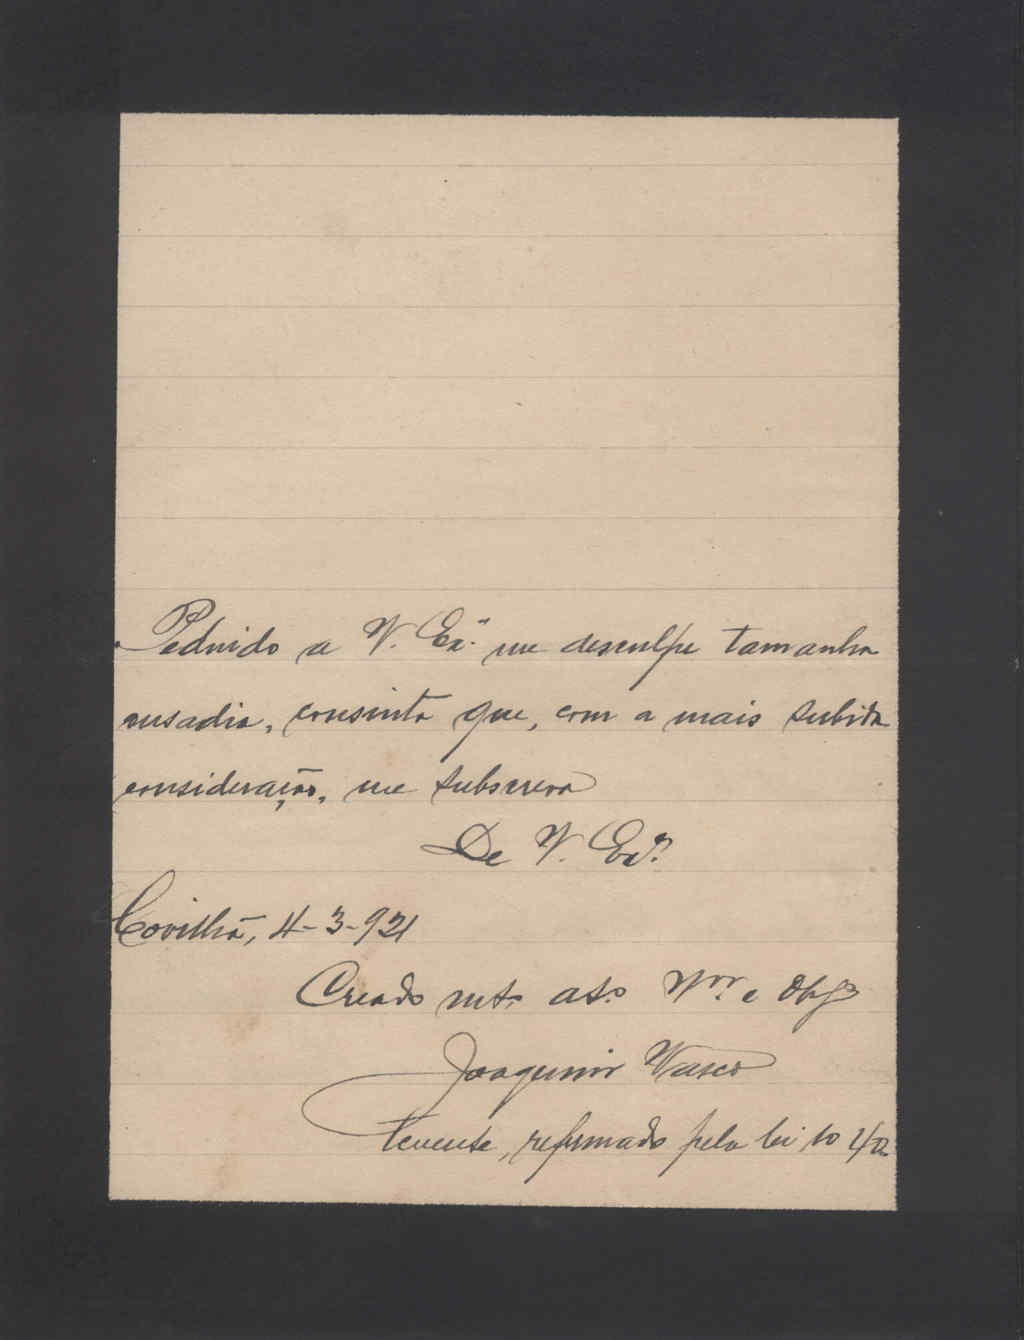 Pedindo a V. Exª. me desculpe tamanha
ousadia, consinta que, com a mais subida
consideração, me subscreva
De V. Exª.
Covilhã, 4-3-921
Creado mtº. atº. Vºr. e Obgº
Joaquim Vasco
tenente, reformado pela lei do